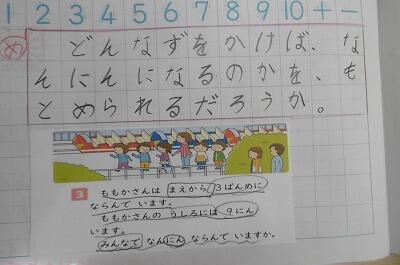 1 2 3 4 5 6 7 8 9 10 + −
め どんなずをかけば、な
んにんになるのかを、も
とめられるだろうか。
3 ももかさんは まえから 3ばんめに
ならんで います。
ももかさんの うしろには 9にん
います。
みんなで なんにん ならんで いますか。